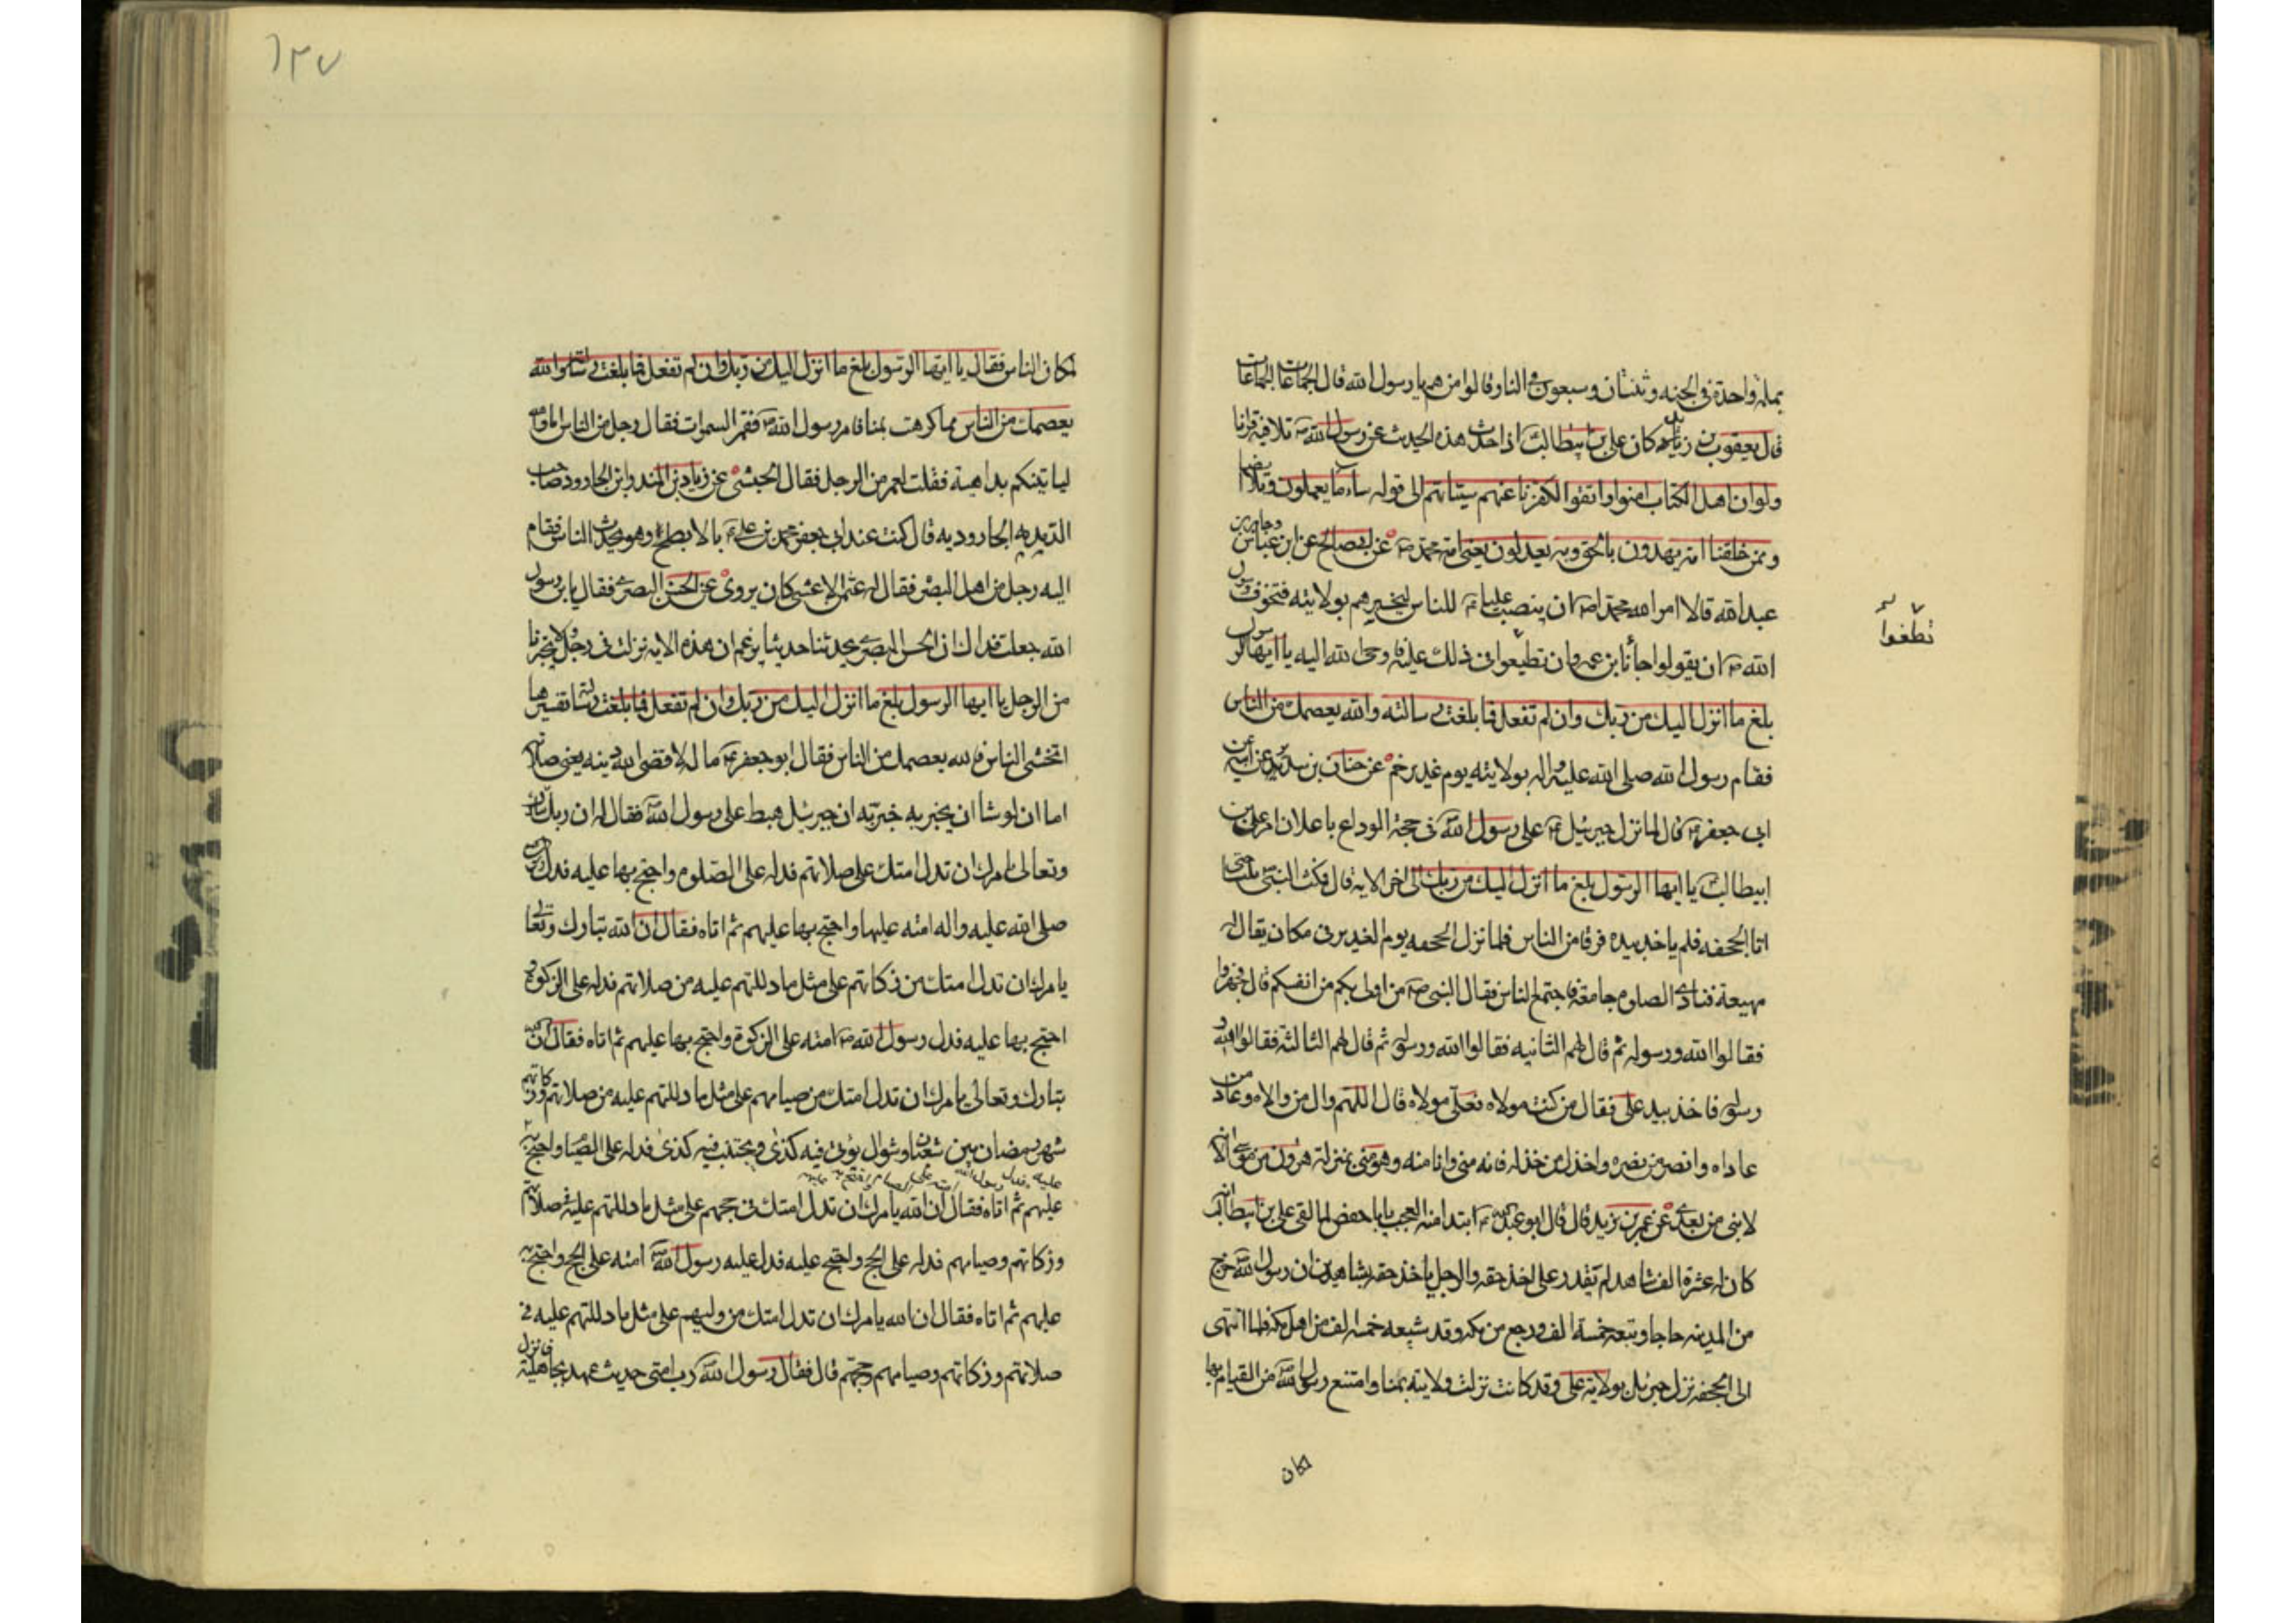 بملة واحدة في الجنه وثنتان وسبعون في النار وقالوا من هم يا رسول الله قال الجماعات الجماعات
قال يعقوب بن زيد كان علي بن ابيطالب اذا حدث هذه الحديث عن رسول الله تلا فيه قرانا
ولو ان اهل الكتاب امنوا واتقوا لكفرنا عنهم سيئاتهم الى قوله ساء ما يعملون وتلا ايضا
وممن خلقنا امة يهدون بالحق وبه يعدلون يعني امة محمد ص عن ابي صالح عن ابن عباس وجابر بن
عبد الله قالا امر الله محمدا ص ان ينصب عليا ع للناس ليخبرهم بولايته فتخوف رسول
الله ص ان يقولوا حابا ابن عمه وان تطيعوا في ذلك عليه فاوحى الله اليه يا ايها الرسول
تطغوا
بلغ ما انزل اليك من ربك وان لم تفعل فما بلغت رسالته والله يعصمك من الناس
فقام رسول الله صلى الله عليه واله بولايته يوم غدير خم عن حنان بن سدير عن ابيه عن
ابي جعفر ع قال لما نزل جبرئيل ع على رسول الله في حجة الوداع باعلان امر علي بن
ابيطالب يا ايها الرسول بلغ ما انزل اليك من ربك الى اخر الاية قال فمكث النبي ثلثا حتى
اتا الجحفه فلم ياخذ بيده فرقا من الناس فلما نزل الجحفه يوم الغدير في مكان يقال له
مهيعة فنادى الصلوة جامعة فاجتمع الناس فقال النبي ص من اولى بكم من انفسكم قال فجهروا
فقالوا الله ورسوله ثم قال لهم الثانيه فقالوا الله ورسوله ثم قال لهم الثالثة فقالوا الله و
رسوله فاخذ بيد علي فقال من كنت مولاه فعلي مولاه قال اللهم وال من والاه وعاد من
عاداه وانصر من نصره واخذل من خذله فانه مني وانا منه وهو مني بمنزلة هرون من موسى الا انه
لا نبي من بعدي عن عمر بن يزيد قال قال ابو عبد الله ع ابتدا منه العجب يا با حفص لما لقى علي بن ابيطالب انه
كان له عشرة الف شاهد لم يقدر على اخذ حقه والرجل ياخذ حقه بشاهدين ان رسول الله خرج
من المدينه حاجا وتبعه خمسة الف ورجع من مكه وقد شيعه خمسه الف من اهل مكه فلما انتهى
الى الجحفه نزل جبرئيل بولاية علي وقد كانت نزلت ولايته بمنا وامتنع رسول الله من القيام بها
لمكان
١٣٧
لمكان الناس فقال يا ايها الرسول بلغ ما انزل اليك من ربك وان لم تفعل فما بلغت رسالته والله
يعصمك من الناس مما كرهت بمنا فامر رسول الله ص فقمت السمرات فقال رجل من الناس اما والله
لياتينكم بداهية فقلت لعمر من الرجل فقال الحبشي عن زياد بن المنذر ابن الجارود صاحب
الديديه الجاروديه قال كنت عند ابي جعفر محمد بن علي ع بالابطح وهو يحدث الناس فقام
اليه رجل من اهل البصره فقال له عثمن الاعشى كان يروى عن الحسن البصري فقال يا بن رسول
الله جعلت فداك ان الحسن البصري يحدثنا حديثا يزعم ان هذه الاية نزلت في رجل ولا يخبرنا
من الرجل يا ايها الرسول بلغ ما انزل اليك من ربك وان لم تفعل فما بلغت رسالته تفسيرها
اتخشى الناس فالله يعصمك من الناس فقال ابو جعفر ع ما له لا قضى الله دينه يعني صلاته
اما ان لو شا ان يخبر به خبر به ان جبرئيل هبط على رسول الله ص فقال له ان ربك تبارك
وتعالى يامرك ان تدل امتك على صلاتهم فدله على الصلوة واحتج بها عليه فدل رسول الله
صلى الله عليه واله امته عليها واحتج بها عليهم ثم اتاه فقال ان الله تبارك وتعالى
يامرك ان تدل امتك من زكاتهم على مثل ما دللتهم عليه من صلاتهم فدله على الزكوة و
احتج بها عليه فدل رسول الله ص امته على الزكوة واحتج بها عليهم ثم اتاه فقال ان الله
تبارك وتعالى يامرك ان تدل امتك من صيامهم على مثل ما دللتهم عليه من صلاتهم وزكاتهم
شهر رمضان بين شعبان وشوال يؤتى فيه كذى ويجتنب فيه كذى فدله على الصيام واحتج به
عليه فدل رسول الله امته على الصيام واحتج به عليهم
عليهم ثم اتاه فقال ان الله يامرك ان تدل امتك في حجهم على مثل ما دللتهم عليه في صلاتهم
وزكاتهم وصيامهم فدله على الحج واحتج عليه فدل عليه رسول الله ص امته على الحج واحتج به
عليهم ثم اتاه فقال ان الله يامرك ان تدل امتك من وليهم على مثل ما دللتهم عليه في
صلاتهم وزكاتهم وصيامهم وحجهم قال فقال رسول الله ص رب امتي حديث عهد بجاهلية فانزل